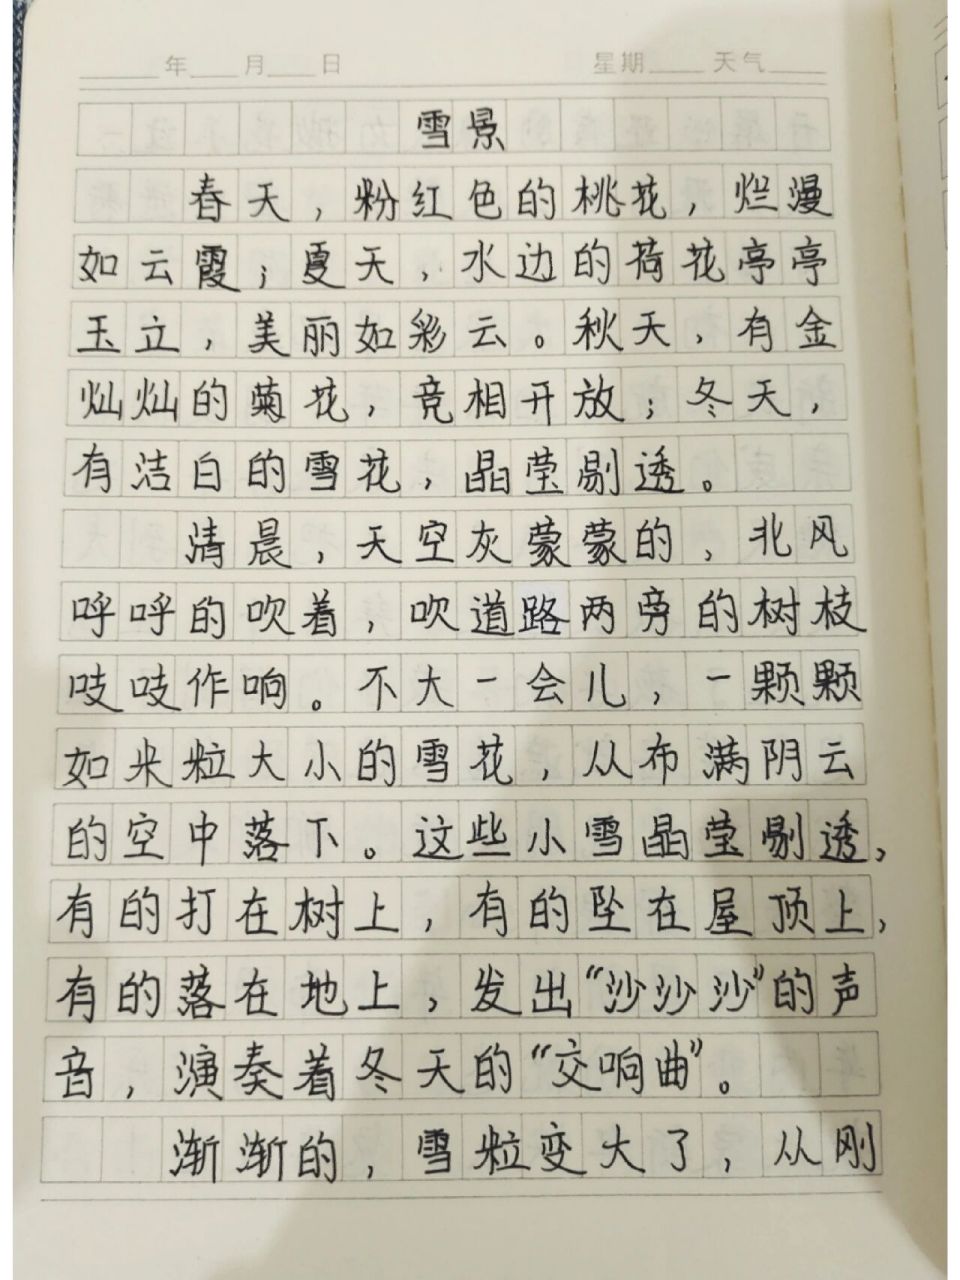 年 月 日 星期 天气
雪景
春天，粉红色的桃花，烂漫
如云霞；夏天，水边的荷花亭亭
玉立，美丽如彩云。秋天，有金
灿灿的菊花，竞相开放；冬天，
有洁白的雪花，晶莹剔透。
清晨，天空灰蒙蒙的，北风
呼呼的吹着，吹道路两旁的树枝
吱吱作响。不大一会儿，一颗颗
如米粒大小的雪花，从布满阴云
的空中落下。这些小雪晶莹剔透，
有的打在树上，有的坠在屋顶上，
有的落在地上，发出“沙沙沙”的声
音，演奏着冬天的“交响曲”。
渐渐的，雪粒变大了，从刚